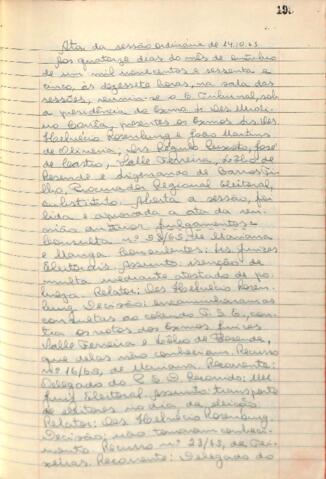 19
Ata da sessão ordinária de 14.10.65
Aos quatorze dias do mês de outubro
de um mil novecentos e sessenta e
cinco, às dezessete horas, na sala das
sessões, reuniu-se o E. Tribunal, sob
a presidência do Exmo Sr. Des.
presentes os Exmos Srs. Des.
Helvécio Rosenburg e João Martins
de Oliveira, Drs. José
de Castro, Valle Ferreira, Célio de
Rezende e de Barros
Procurador Regional Eleitoral,
substituto. Aberta a sessão, foi
lida e aprovada a ata da reu-
nião anterior. Julgamentos:
Consulta nº 28/65, de Mariana
e Manga. Consulentes: Os Juizes
Eleitorais. Assunto: isenção de
multa mediante atestado de po-
breza. Relator: Des. Helvécio Rosen-
burg. Decisão: encaminharam as
consultas ao colendo T.S.E., con-
tra os votos dos Exmos Juizes
Valle Ferreira e Célio de Rezende,
que delas não conheciam. Recurso
nº 16/63, de Mariana. Recorrente:
Delegado do P.S.D. Recorrido: MM.
Juiz Eleitoral. Assunto: transporte
de eleitores no dia da eleição.
Relator: Des. Helvécio Rosenburg.
Decisão: não tomaram conheci-
mento. Recurso nº 23/63, de Tei-
xeiras. Recorrente: Delegado do